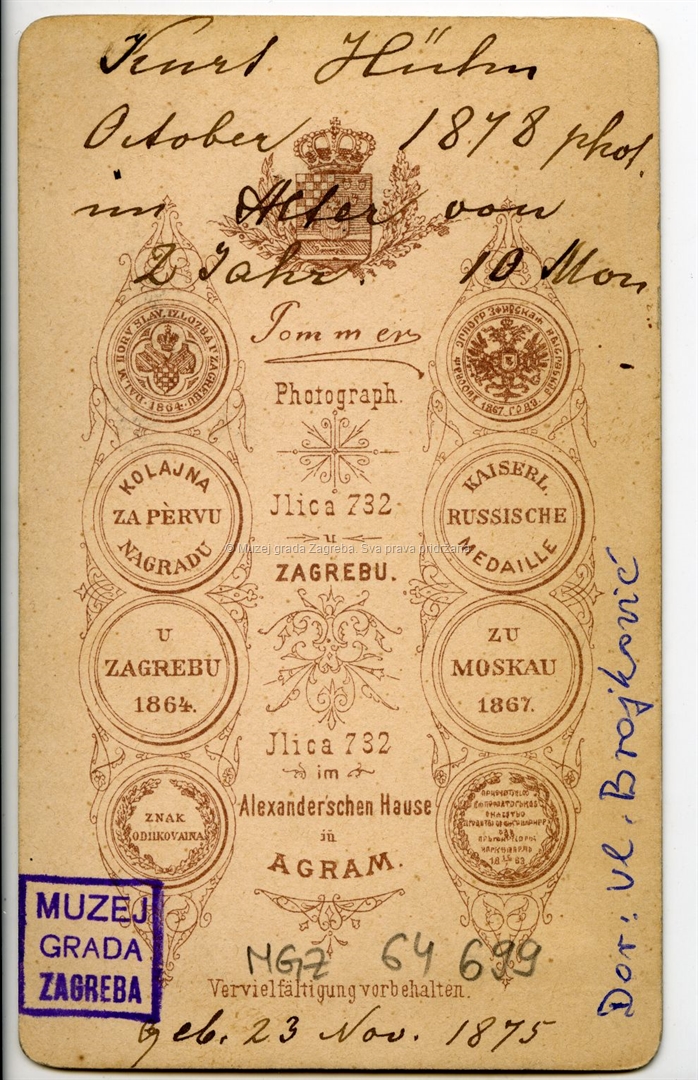 Kurt Hühn
October 1878 phot.
im Alter von
2 Jahr. 10 Mon
Pommer
Photograph.
Jlica 732
u
ZAGREBU.
DALM. HORV. SLAV. IZLOŽBA U ZAGREBU
1864.
KOLAJNA
ZA PÈRVU
NAGRADU
U
ZAGREBU
1864.
ZNAK
ODLIKOVANJA
1867.
KAISERL.
RUSSISCHE
MEDAILLE
ZU
MOSKAU
1867.
Jlica 732
im
Alexander'schen Hause
in
AGRAM.
MUZEJ
GRADA
ZAGREBA
MGZ 64 699
Vervielfältigung vorbehalten.
geb. 23 Nov. 1875
Dar: vl. Brajković
© Muzej grada Zagreba. Sva prava pridržana